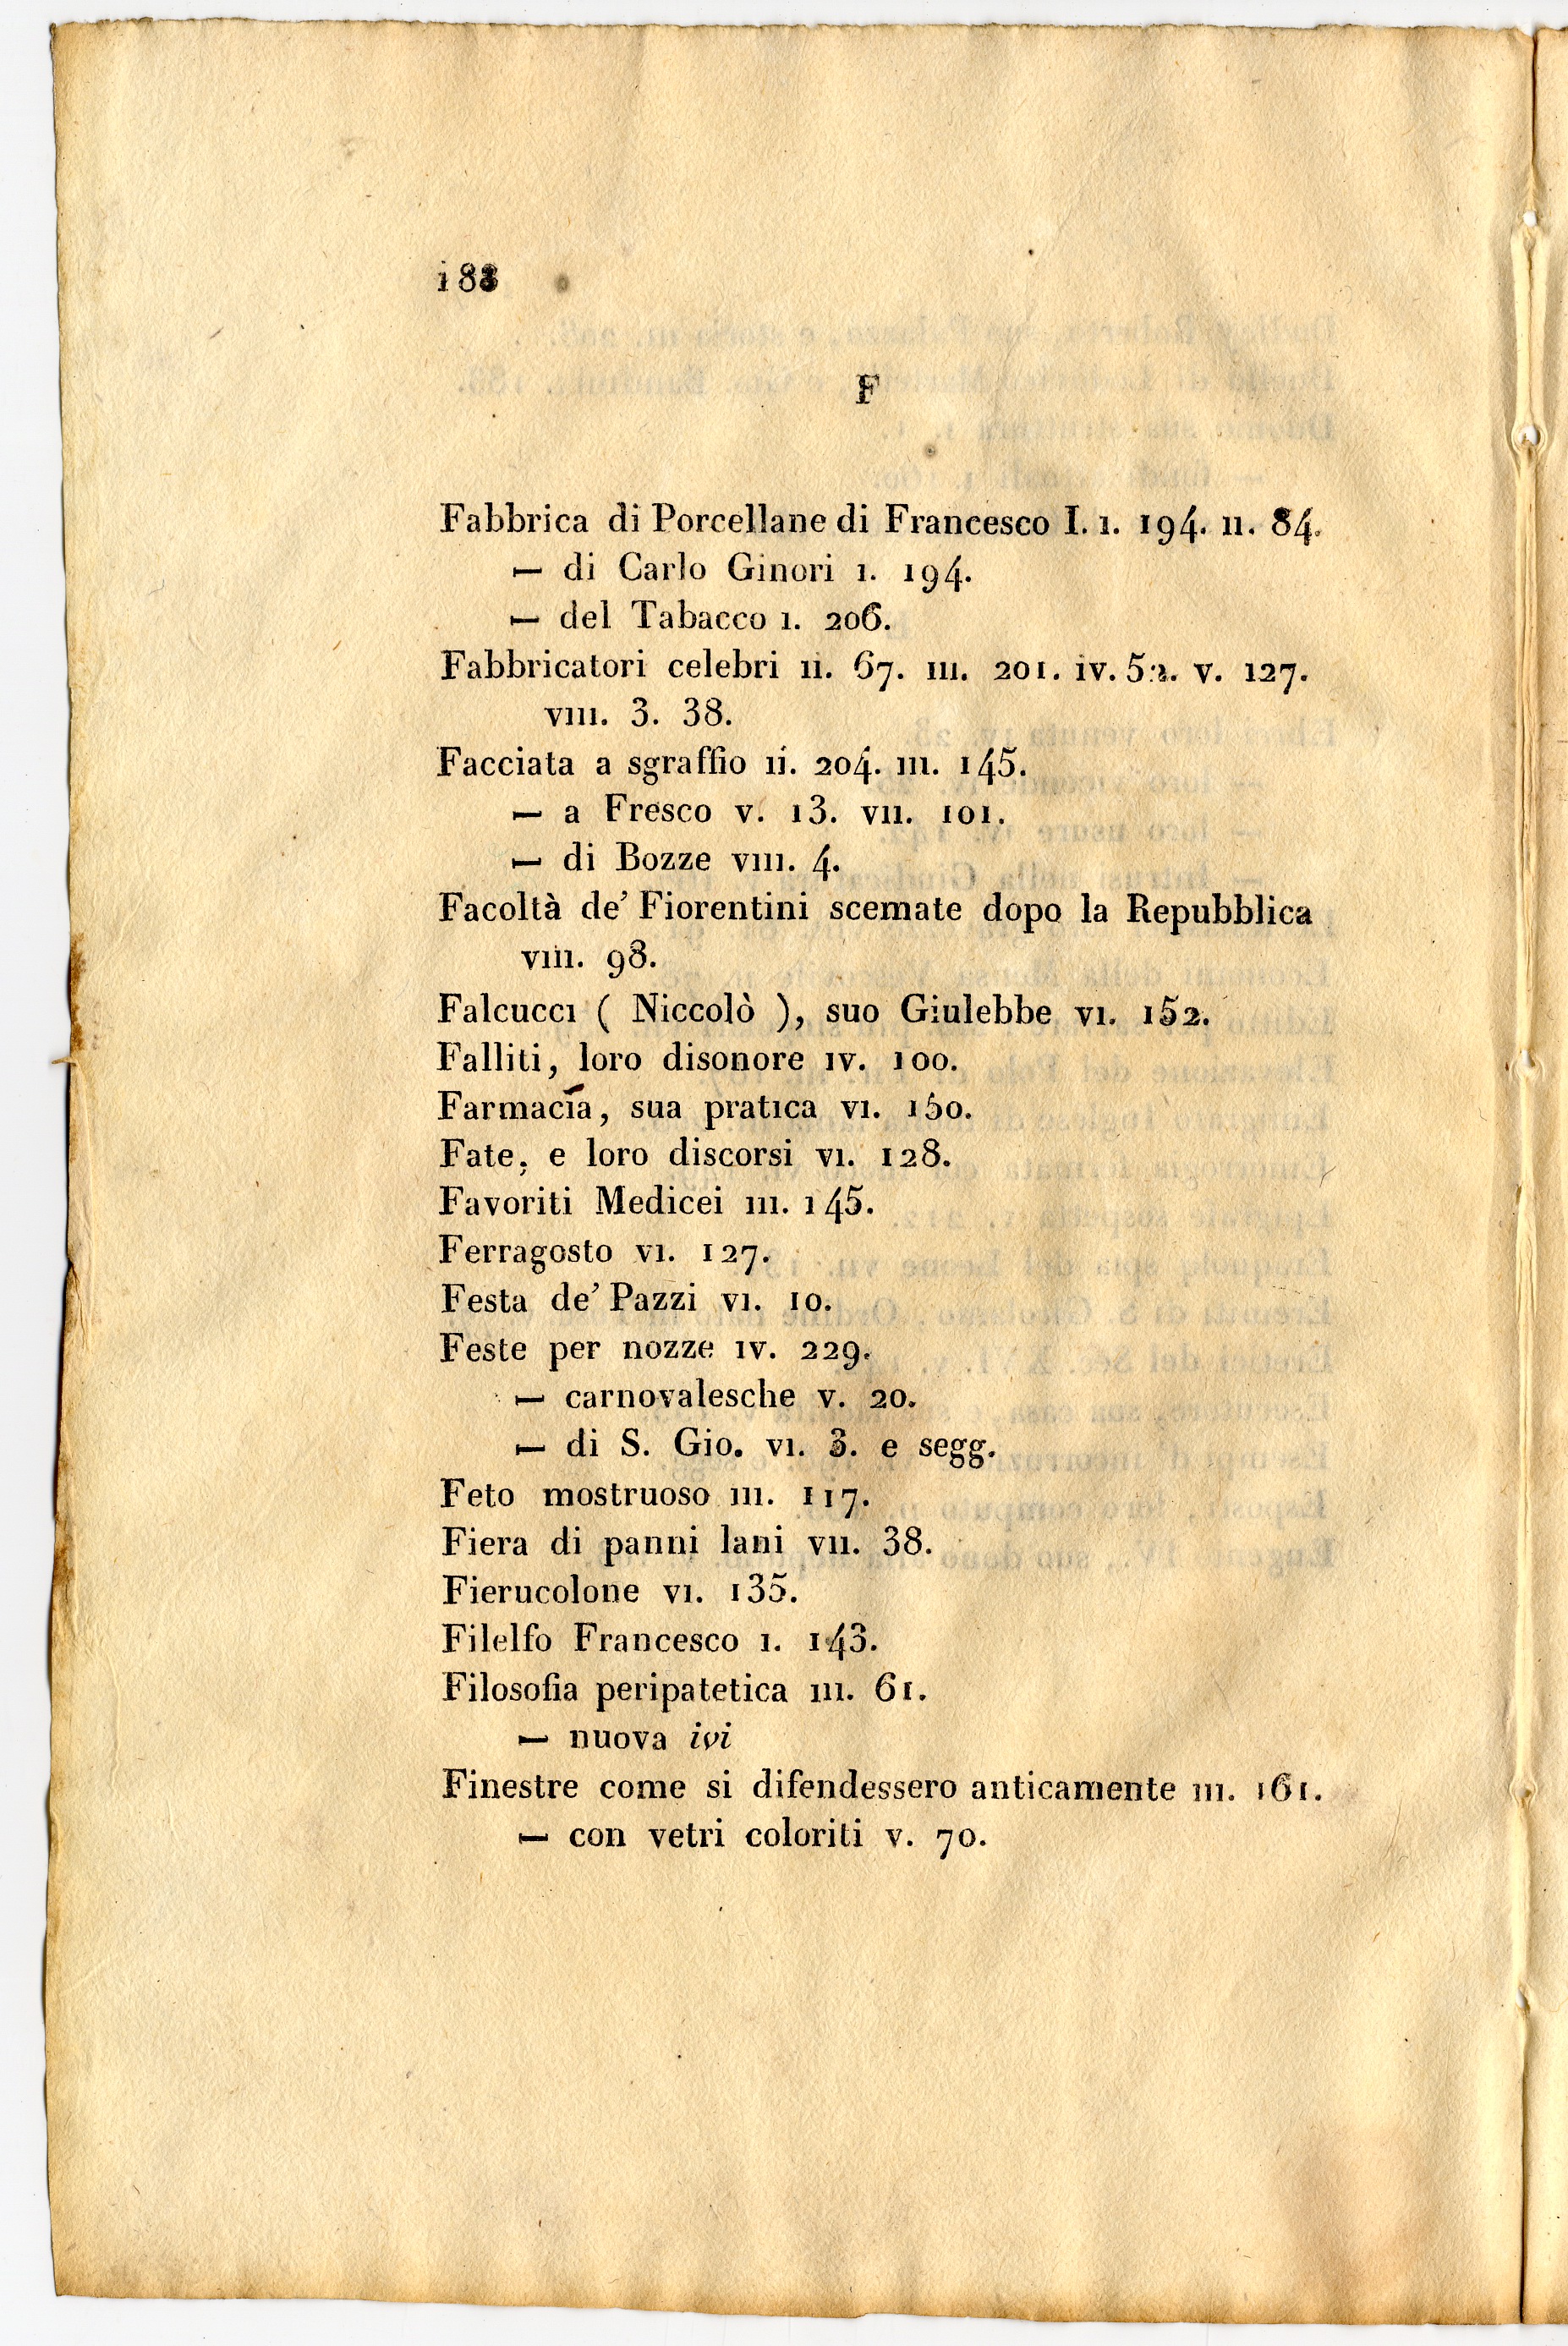 188
F
Fabbrica di Porcellane di Francesco I. I. 194. II. 84.
— di Carlo Ginori I. 194.
— del Tabacco I. 206.
Fabbricatori celebri II. 67. III. 201. IV. 52. V. 127.
VIII. 3. 38.
Facciata a sgraffio II. 204. III. 145.
— a Fresco V. 13. VII. 101.
— di Bozze VIII. 4.
Facoltà de' Fiorentini scemate dopo la Repubblica
VIII. 98.
Falcucci ( Niccolò ), suo Giulebbe VI. 152.
Falliti, loro disonore IV. 100.
Farmacìa, sua pratica VI. 150.
Fate, e loro discorsi VI. 128.
Favoriti Medicei III. 145.
Ferragosto VI. 127.
Festa de' Pazzi VI. 10.
Feste per nozze IV. 229.
— carnovalesche V. 20.
— di S. Gio. VI. 3. e segg.
Feto mostruoso III. 117.
Fiera di panni lani VII. 38.
Fierucolone VI. 135.
Filelfo Francesco I. 143.
Filosofia peripatetica III. 61.
— nuova ivi
Finestre come si difendessero anticamente III. 161.
— con vetri coloriti V. 70.